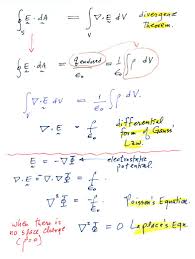 ∮_S E · dA = ∫_V ∇ · E dV divergence Theorem.
∮ E · dA = q_enclosed / ε₀ = 1/ε₀ ∫ ρ dV
∫ ∇ · E dV = 1/ε₀ ∫ ρ dV
∇ · E = ρ/ε₀ differential form of Gauss' Law.
E = -∇Φ electrostatic potential.
∇²Φ = -ρ/ε₀ Poisson's Equation
when there is no space charge (ρ=0) ∇²Φ = 0 Laplace's Eqn.